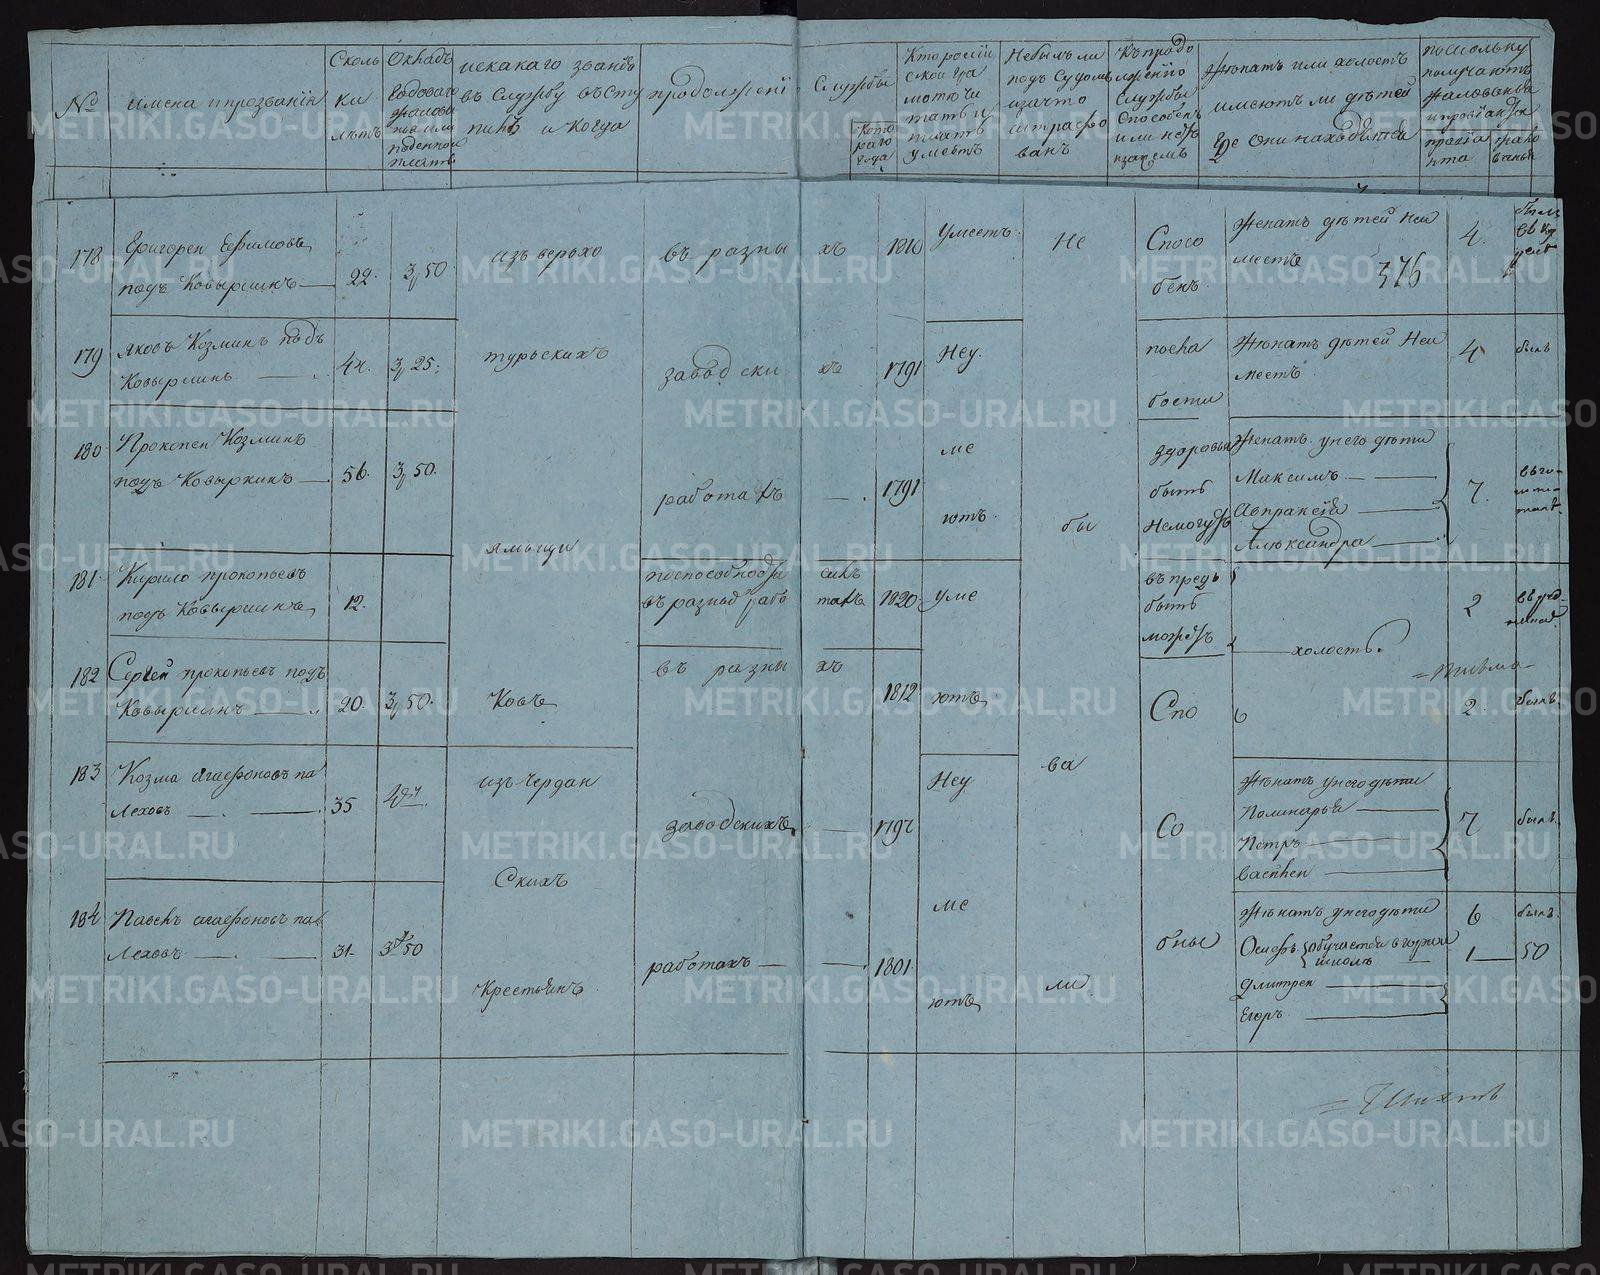 №
имена и прозвании
Сколь
ки
лѣтъ
Окладъ
годоваго
жалова
поденной
платы
ис какаго званія
въ службу всту
пилъ и когда
продолженіи
службы
кото
раго
года
Кто россій
ской гра
моте чи
тать и
писать
умеетъ
Небылъ ли
подъ судомъ
и за что
штрафо
ванъ
Къ продо
лжению
службы
способенъ
или нетъ
и зачемъ
женатъ или холостъ
имеютъ ли дѣтей
где они находятся
по скольку
получаютъ
жалованья
и провіанта
провiа
нта
жало
ванья
178
Григорей Ефимовъ
подъ Ковыркинъ
22.
3, 50
изъ верьхо
въ разны
хъ
1810
Умеетъ
Не
Спосо
бенъ
Женатъ дѣтей Неи
местъ
376
4.
179
Яковъ Козминъ подъ
Ковыркинъ
44.
3, 25.
турьскихъ
завод ски
хъ
1791
Неу.
Женатъ дѣтей Неи
местъ
4
180
Прокопей Козминъ
подъ Ковыркинъ
56.
3, 50.
работахъ
1791
ме
ютъ.
бы
здоровья
быть
немогутъ
Женатъ у него дѣти
Максимъ
Авпраксiя
Александра
7.
181
Кирило прокопьевъ
подъ Ковыркинъ
12.
ямщи
въ разныхъ рабо
тахъ
1820
уме
въ предь
быть
можетъ
холостъ.
2
182
Сергей прокопьевъ подъ
Ковыркинъ
20.
3, 50.
Ковъ
въ разны
хъ
1812
ютъ
Спо
2.
183
Козма Агафоновъ па
леховъ
35
изъ Чердан
заводскихъ
1797
Неу
ва
Со
Женатъ у него дѣти
Полинарья
Петръ
Василей
7
184
Павелъ агафоновъ па
леховъ
31.
3 50
Скихъ
Крестьянъ
работахъ
1801
ме
ютъ
ли
бны
Женатъ у него дѣти
Осифъ обучается в горной
школѣ
Дмитрей
Егоръ
6
1
50
METRIKI.GASO-URAL.RU